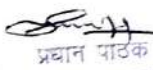 प्रधान पाठक